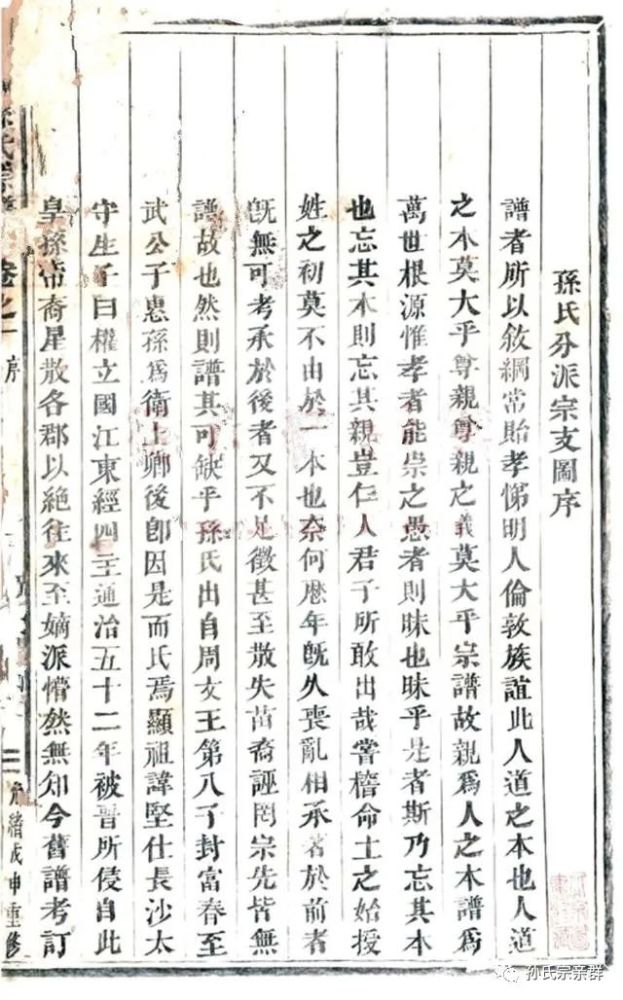 孫氏分派宗支圖序
譜者所以敘綱常貽孝悌明人倫敦族誼此人道之本也人道
之本莫大乎尊親尊親之義莫大乎宗譜故親爲人之本譜爲
萬世根源惟孝者能崇之愚者則昧也昧乎是者斯乃忘其本
也忘其本則忘其親豈仁人君子所敢出哉嘗稽命土之始授
姓之初莫不由於一本也奈何歷年旣久喪亂相承著於前者
旣無可考承於後者又不足徵甚至散失苗裔誣罔宗先皆無
譜故也然則譜其可缺乎孫氏出自周文王第八子封富春至
武公子惠孫爲衛上卿後卽因是而氏焉顯祖諱堅仕長沙太
守生子曰權立國江東經四主通治五十二年被晉所侵自此
皇孫帝裔星散各郡以絕往來至嫡派懵然無知今舊譜考訂
孫氏宗譜 卷之一 序 二
光緒戊申重修
孙氏宗亲群